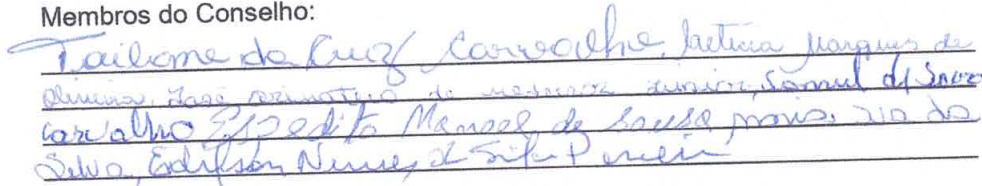 Membros do Conselho:
Tailane da Cruz Carvalho, Leticia Marques de
Oliveira, José de Junior, Samuel de Sousa
Carvalho Espedito Manoel de Sousa, Maria da
Silva, Edilson Nunes da Silva Pereira